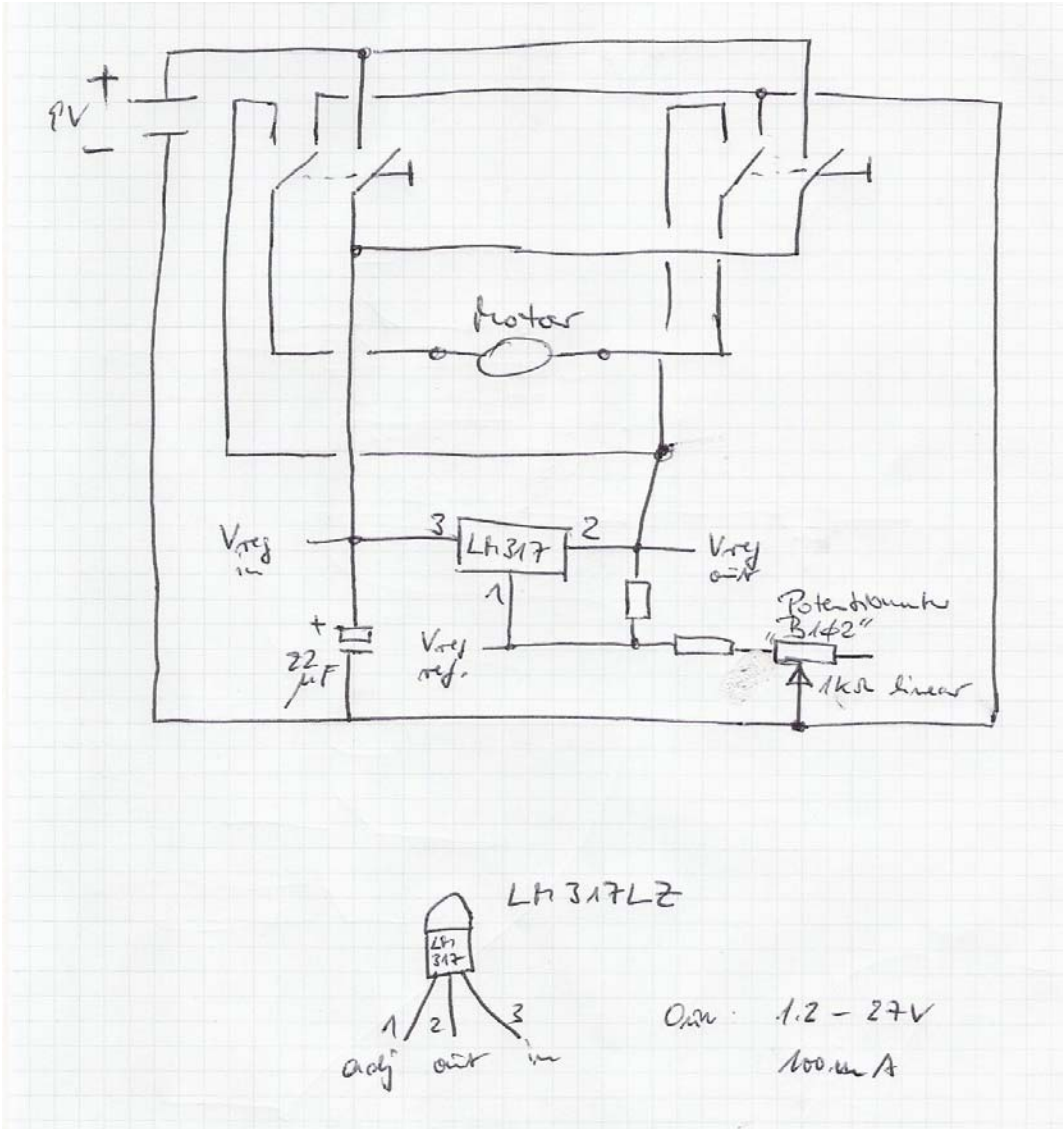 +
9V
−
Motor
Vreg
in
3
LM317
2
Vreg
out
1
+
22
µF
Vreg
ref.
Potentiometer
"B1φ2"
1kΩ linear
LM317LZ
LM
317
1
2
3
adj
out
in
1.2 - 27V
100mA